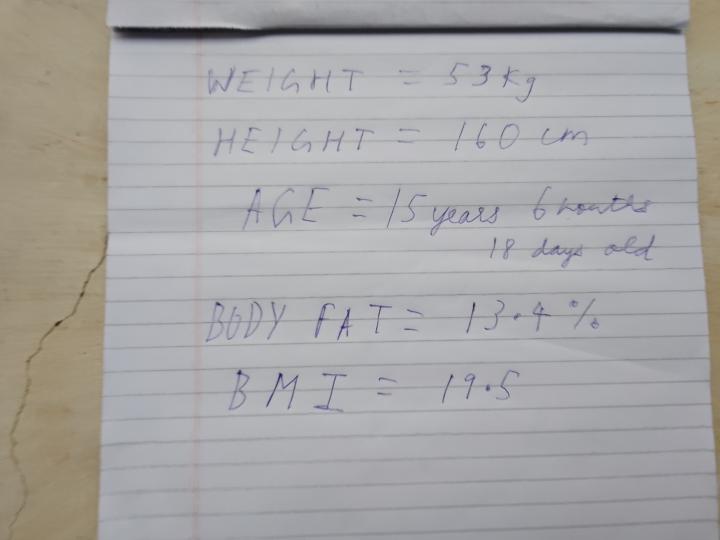 WEIGHT = 53 kg
HEIGHT = 160 cm
AGE = 15 years 6 months
18 days old
BODY FAT = 13.4 %
BMI = 19.5